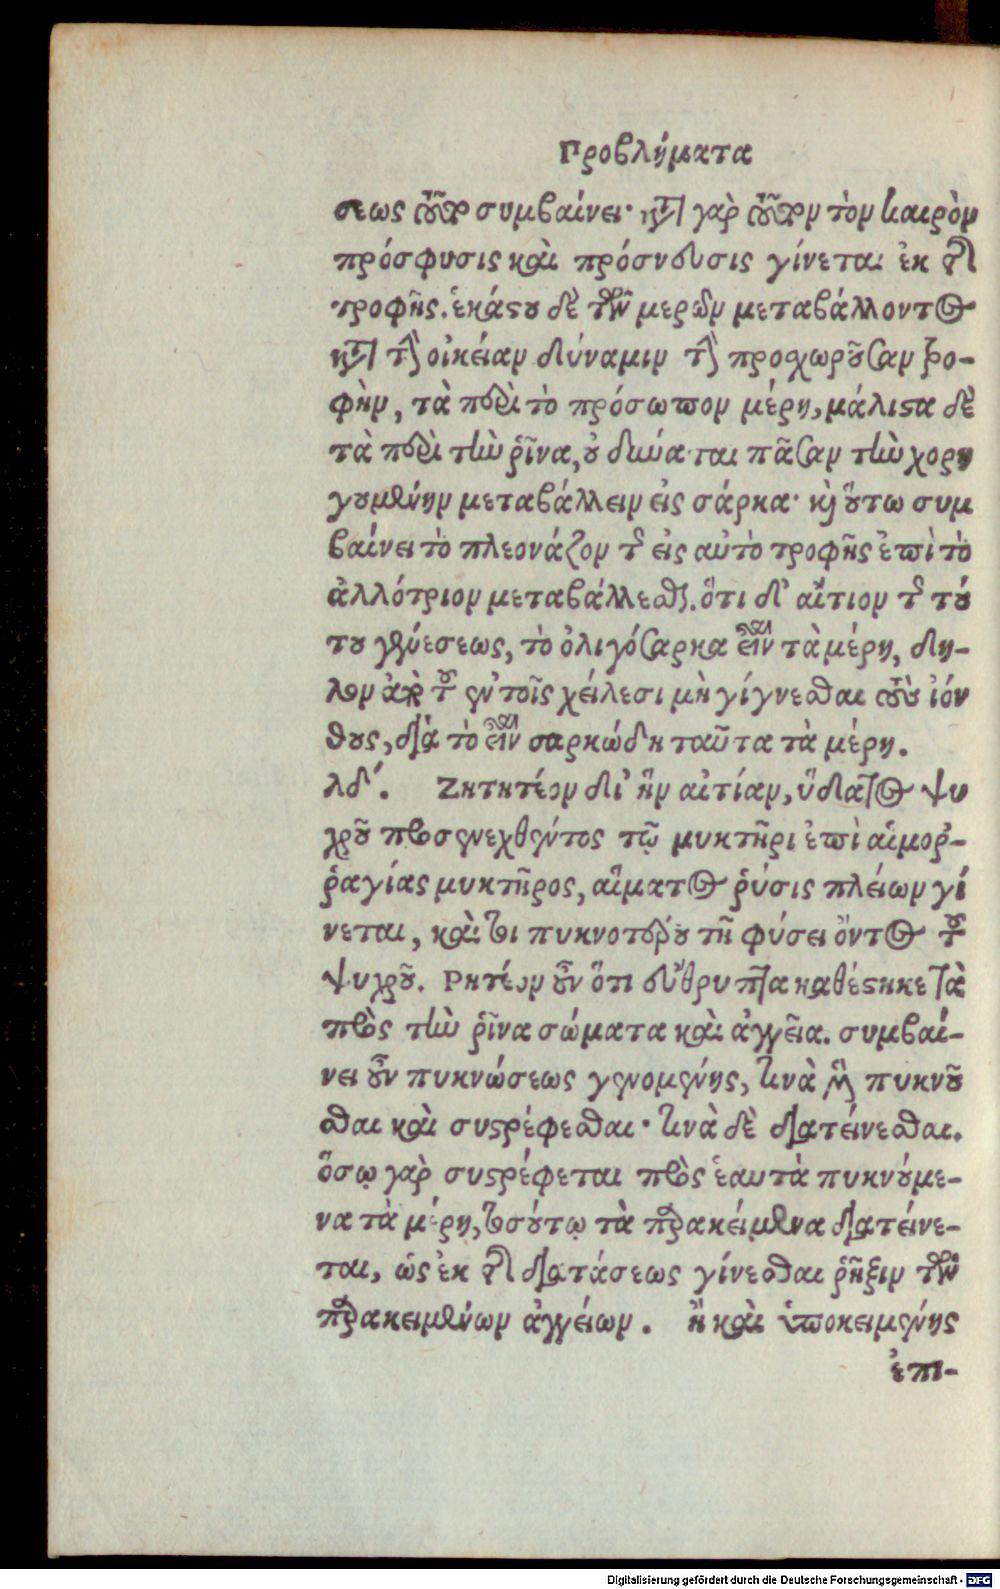 Προβλήματα
σεως τοῦτο συμβαίνει· κατὰ γὰρ τοῦτον τὸν καιρὸν
πρόσφυσις καὶ πρόσνδυσις γίνεται ἐκ τῆς
τροφῆς. ἑκάστου δὲ τῶν μερῶν μεταβάλλοντος
κατὰ τὴν οἰκείαν δύναμιν τὴν προχωροῦσαν τρο-
φὴν, τὰ περὶ τὸ πρόσωπον μέρη, μάλιστα δὲ
τὰ περὶ τὴν ῥῖνα, οὐ δύναται πᾶσαν τὴν χορη
γουμένην μεταβάλλειν εἰς σάρκα· καὶ οὕτω συμ
βαίνει τὸ πλεονάζον τῆς εἰς αὐτὸ τροφῆς ἐπὶ τὸ
ἀλλότριον μεταβάλλεσθαι. ὅτι δ' αἴτιον τῆς τού
του γενέσεως, τὸ ὀλιγόσαρκα εἶναι τὰ μέρη, δη-
λον ἀπὸ τοῦ ἐν τοῖς χείλεσι μὴ γίγνεσθαι τοὺς ἰόν
θους, διὰ τὸ εἶναι σαρκώδη ταῦτα τὰ μέρη.
λδ´. Ζητητέον δι' ἣν αἰτίαν, ὕδατος ψυ
χροῦ προσενεχθέντος τῷ μυκτῆρι ἐπὶ αἱμοῤ-
ῥαγίας μυκτῆρος, αἵματος ῥύσις πλείων γί
νεται, καίτοι πυκνοτέρου τῇ φύσει ὄντος τοῦ
ψυχροῦ. Ρητέον οὖν ὅτι εὔθρυπτα καθέστηκε τὰ
πρὸς τὴν ῥῖνα σώματα καὶ ἀγγεῖα. συμβαί-
νει οὖν πυκνώσεως γενομένης, τινὰ μὲν πυκνοῦ
σθαι καὶ συστρέφεσθαι· τινὰ δὲ διατείνεσθαι.
ὅσῳ γὰρ συστρέφεται πρὸς ἑαυτὰ πυκνούμε-
να τὰ μέρη, τοσούτῳ τὰ παρακείμενα διατείνε-
ται, ὡς ἐκ τῆς διατάσεως γίνεσθαι ῥῆξιν τῶν
παρακειμένων ἀγγείων. ἢ καὶ ὑποκειμένης
ἐπι-
Digitalisierung gefördert durch die Deutsche Forschungsgemeinschaft - DFG